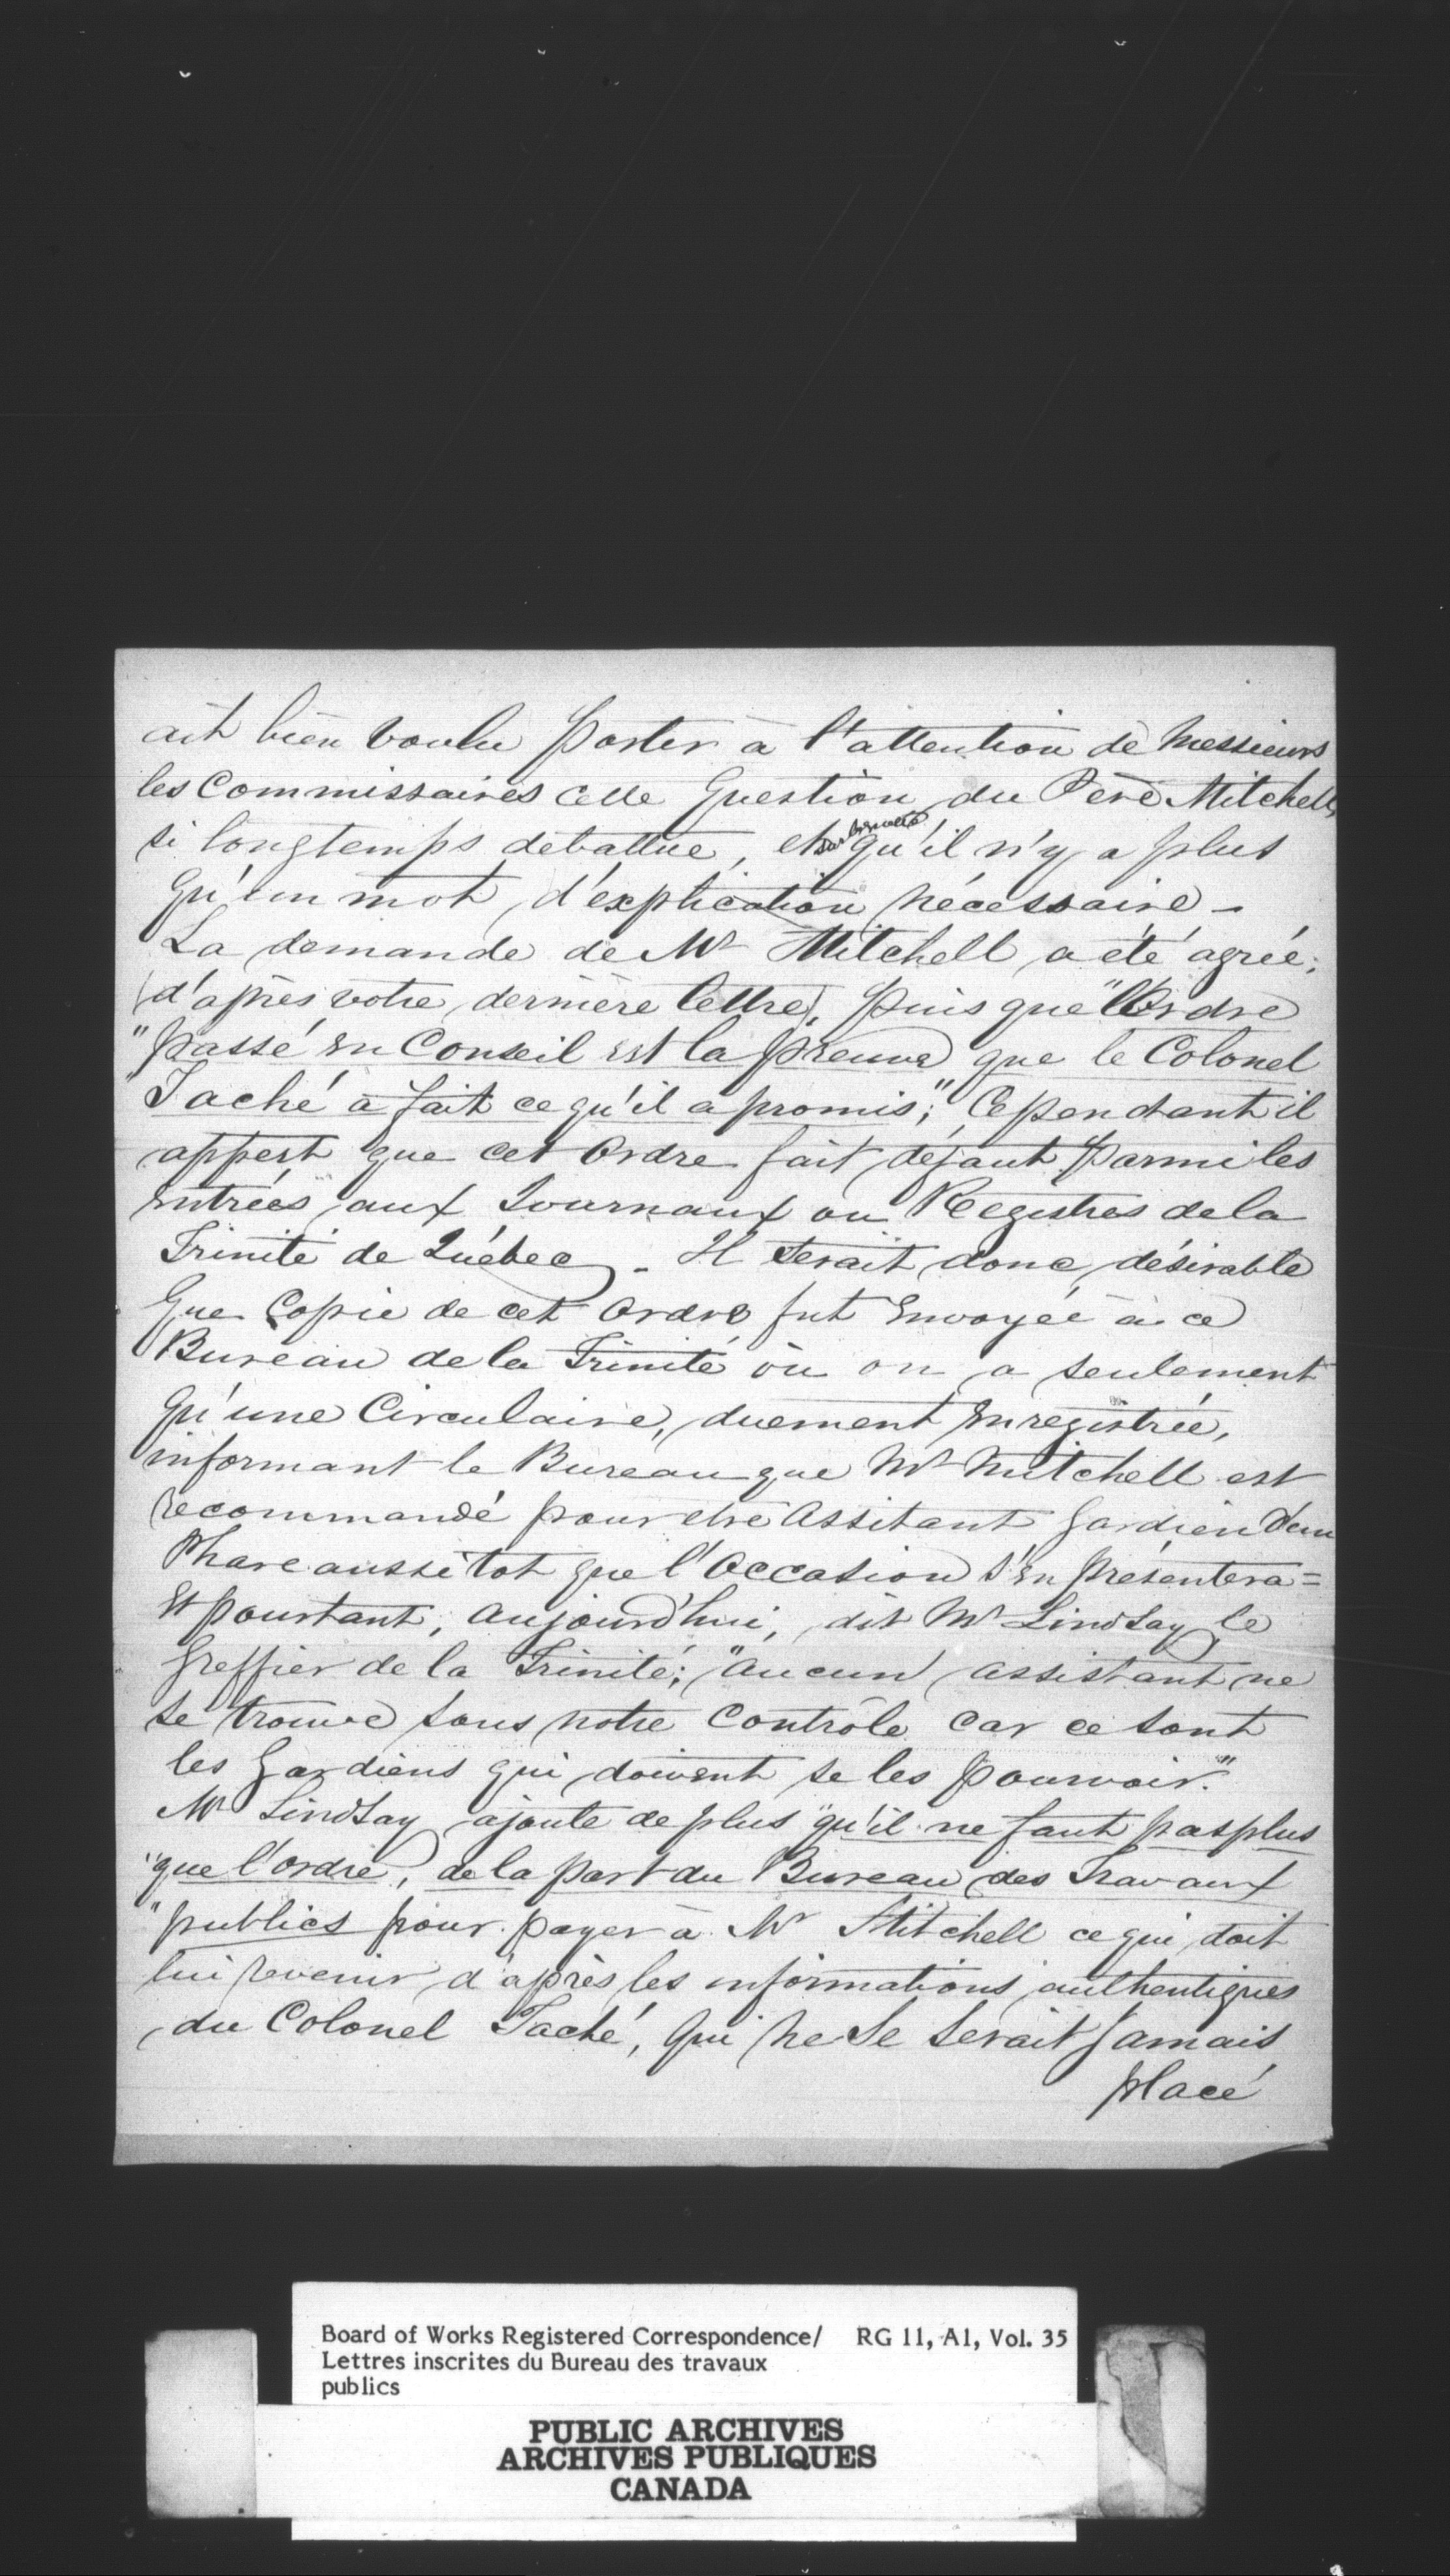 ait bien voulu porter à l'attention de Messieurs
les Commissaires cette Question du Père Mitchell,
si longtemps debattue, et sur laquelle qu'il n'y a plus
Qu'un mot d'explication nécessaire -
La demande de Mr Mitchell a été agrée;
(d'après votre dernière lettre), puis que "l'Ordre
"passé en Conseil est la preuve que le Colonel
"Taché a fait ce qu'il a promis;" Cependant il
appert que cet Ordre fait défaut parmi les
entrées aux Journaux ou Registres de la
Trinité de Québec - Il serait donc désirable
Que Copie de cet Ordre fut Envoyée à ce
Bureau de la Trinité où on a seulement
Qu'une Circulaire, duement Enregistrée,
informant le Bureau que Mr Mitchell est
recommandé pour etre Assitant Gardien d'un
Phare aussitot que l'Occasion s'En présentera =
Et pourtant, aujourd'hui, dit Mr Lindsay le
Greffier de la Trinité; "aucun assistant ne
se trouve sous notre Contrôle car ce sont
les Gardiens qui doivent se les pourvoir."
Mr Lindsay ajoute de plus "qu'il ne faut pas plus
"que l'ordre, de la part du Bureau des Travaux
"publics pour payer à Mr Mitchell ce qui doit
lui revenir d'après les informations authentiques
du Colonel Taché, Qui ne Se Serait Jamais
placé
Board of Works Registered Correspondence/ RG 11, A1, Vol. 35
Lettres inscrites du Bureau des travaux
publics
PUBLIC ARCHIVES
ARCHIVES PUBLIQUES
CANADA